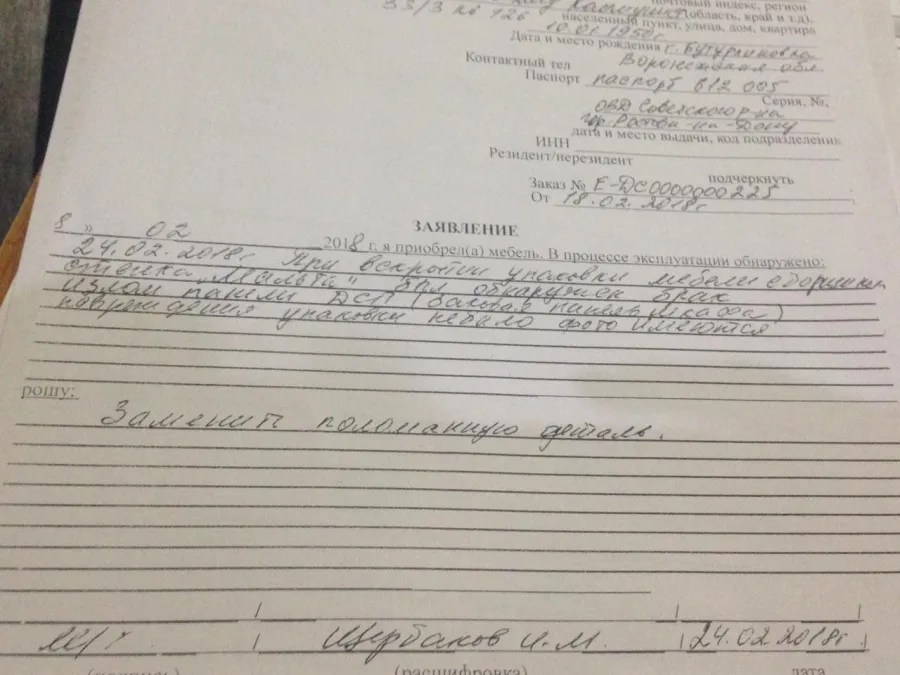 почтовый индекс, регион
33/3 кв 126 (область, край и т.д).
населенный пункт, улица, дом, квартира
10.01.1950г
Дата и место рождения г. Бутурлиновка
Воронежская обл
Контактный тел
Паспорт паспорт 612 005
Серия, №,
ОВД Советского р-на
гор. Ростова-на-Дону
дата и место выдачи, код подразделения
ИНН
Резидент/нерезидент
подчеркнуть
Заказ № Е-ДС0000000225
От 18.02.2018г
ЗАЯВЛЕНИЕ
8 » 02 2018 г. я приобрел(а) мебель. В процессе эксплуатации обнаружено:
24.02.2018г При вскрытии упаковки мебели сборщиком
стенка "Мальта" был обнаружен брак
излом панели ДСП (боковая панель шкафа)
повреждения упаковки небыло фото имеются
рошу:
Заменить поломанную деталь.
Щербаков И.М. 24.02 2018г
(подпись) (расшифровка) дата